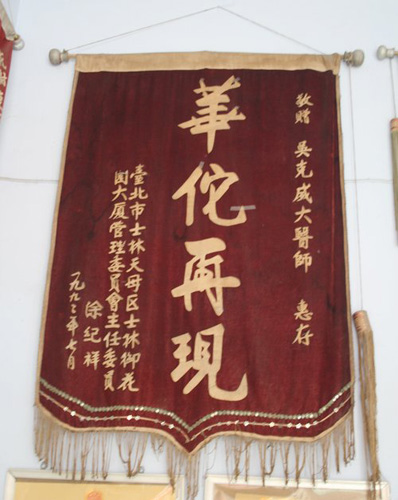 敬贈 吳克威大醫師 惠存
華佗再現
臺北市士林天母区士林御花
園大厦管理委員會主任委員
徐纪祥
一九九三年七月